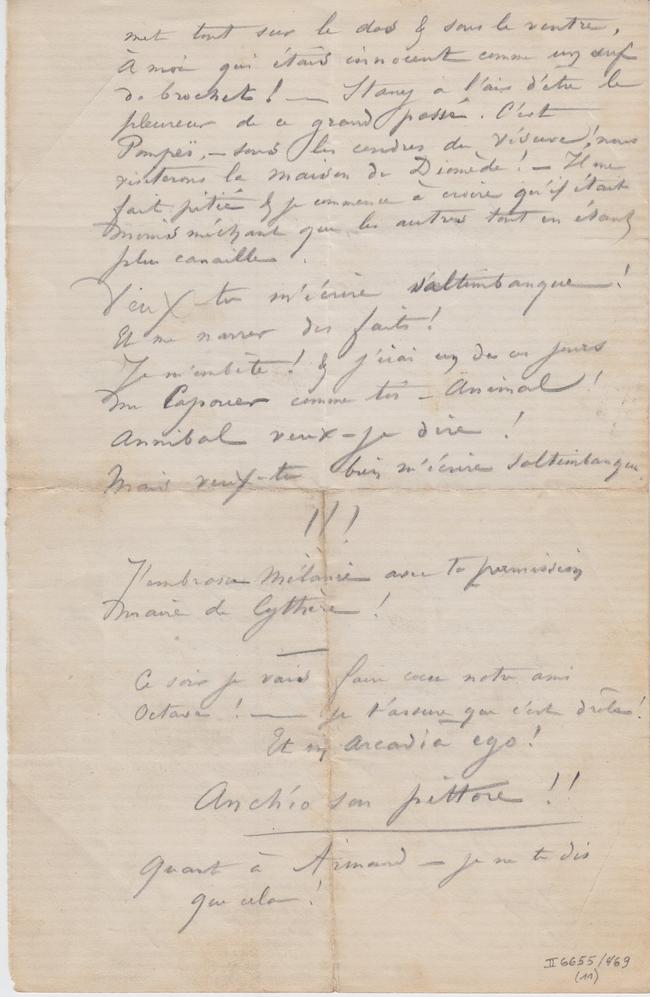 met tout sur le dos & sous le ventre,
À moi qui étais innocent comme un œuf
de brochet ! — Stany a l'air d'être le
pleureur de ce grand passé. C'est
Pompeï, — sous les cendres du vésuve ! nous
visiterons la maison de Diomède ! — Il me
fait pitié & je commence à croire qu'il était
moins méchant que les autres tout en étant
plus canaille.
Veux-tu m'écrire saltimbanque — !
Et me narrer des faits !
Je m'embête ! & j'irai un de ces jours
me Capouer comme toi — Animal !
Annibal veux-je dire !
Mais veux-tu bien m'écrire saltimbanque
!!!
J'embrasse Mélanie avec ta permission
maire de Cythère !
Ce soir je vais faire cocu notre ami
Octave ! — je t'assure que c'est drôle !
Et in Arcadia ego !
Anch'io son pittore !!
Quant à Armand — je ne te dis
que cela !
II 6655/469
(11)